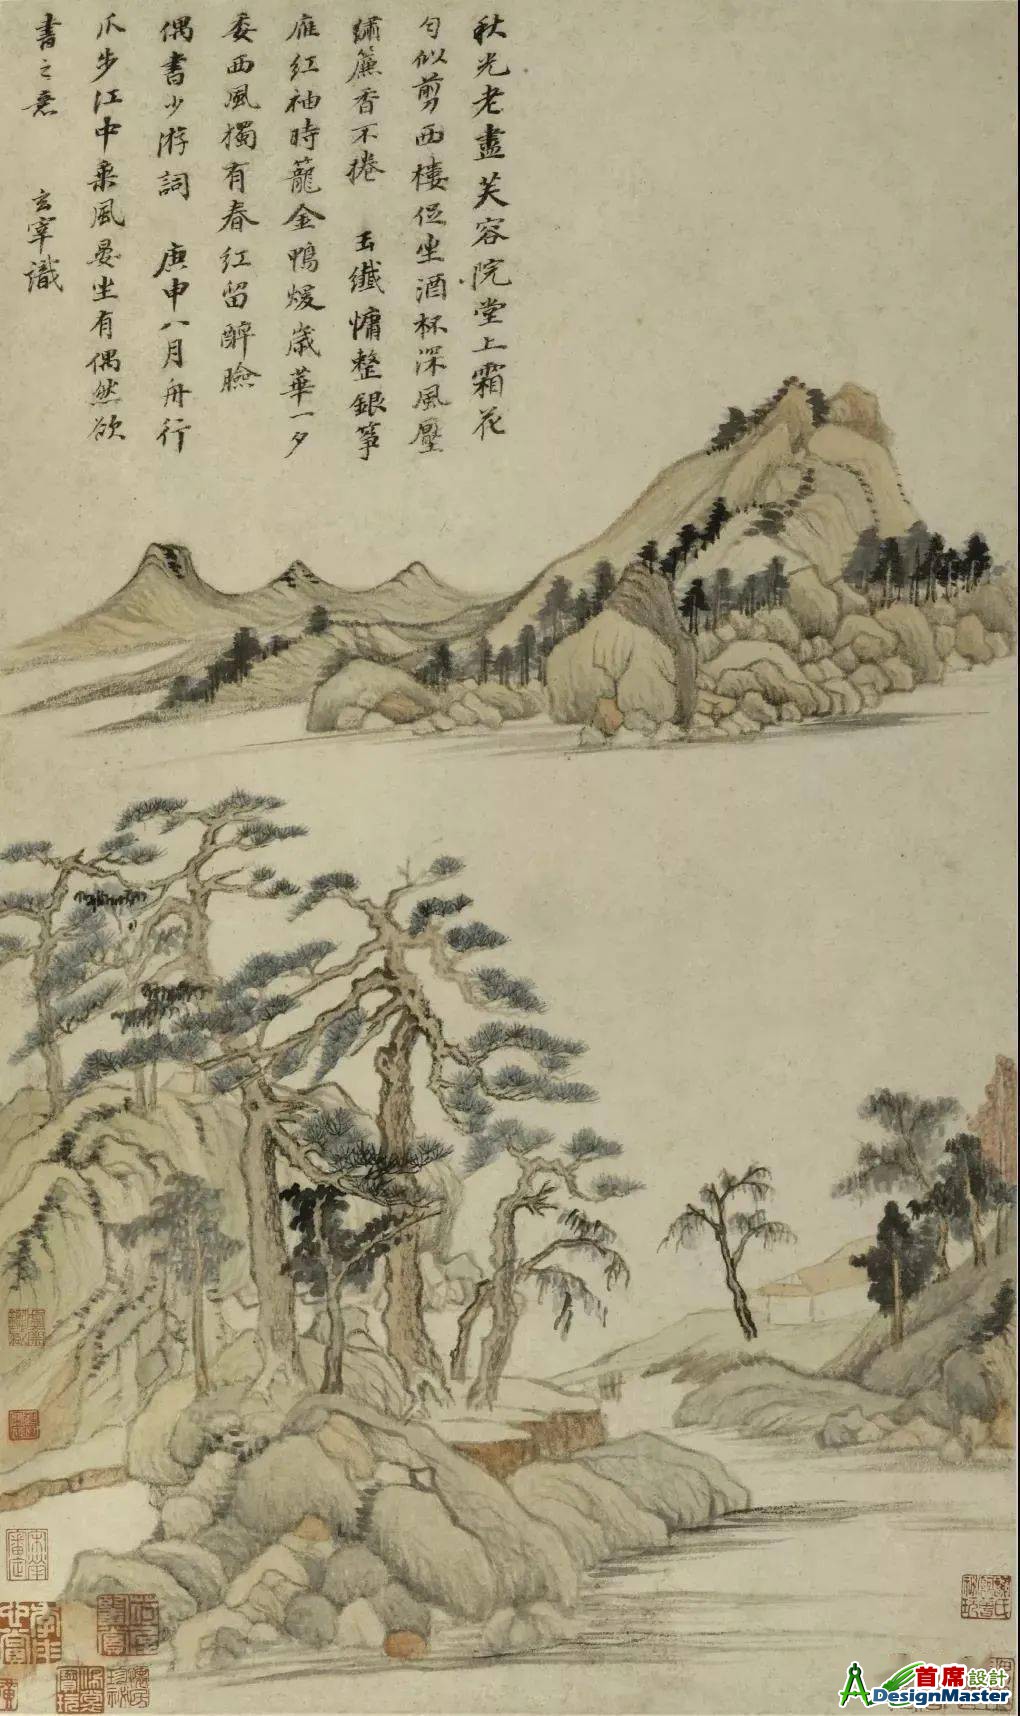 秋光老盡芙容院堂上霜花
勻似剪西樓促坐酒杯深風壓
繡簾香不捲 玉纖慵整銀筝
雁紅袖時籠金鴨煖歲華一夕
委西風獨有春紅留醉臉
偶書少游詞 庚申八月舟行
瓜步江中乘風晏坐有偶然欲
書之意 玄宰識
首席設計
DesignMaster